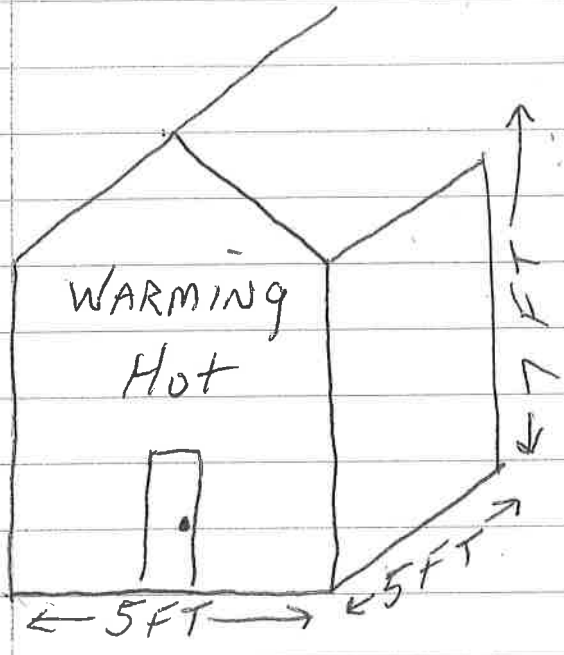 WARMING
Hot
7 FT
5FT
5FT